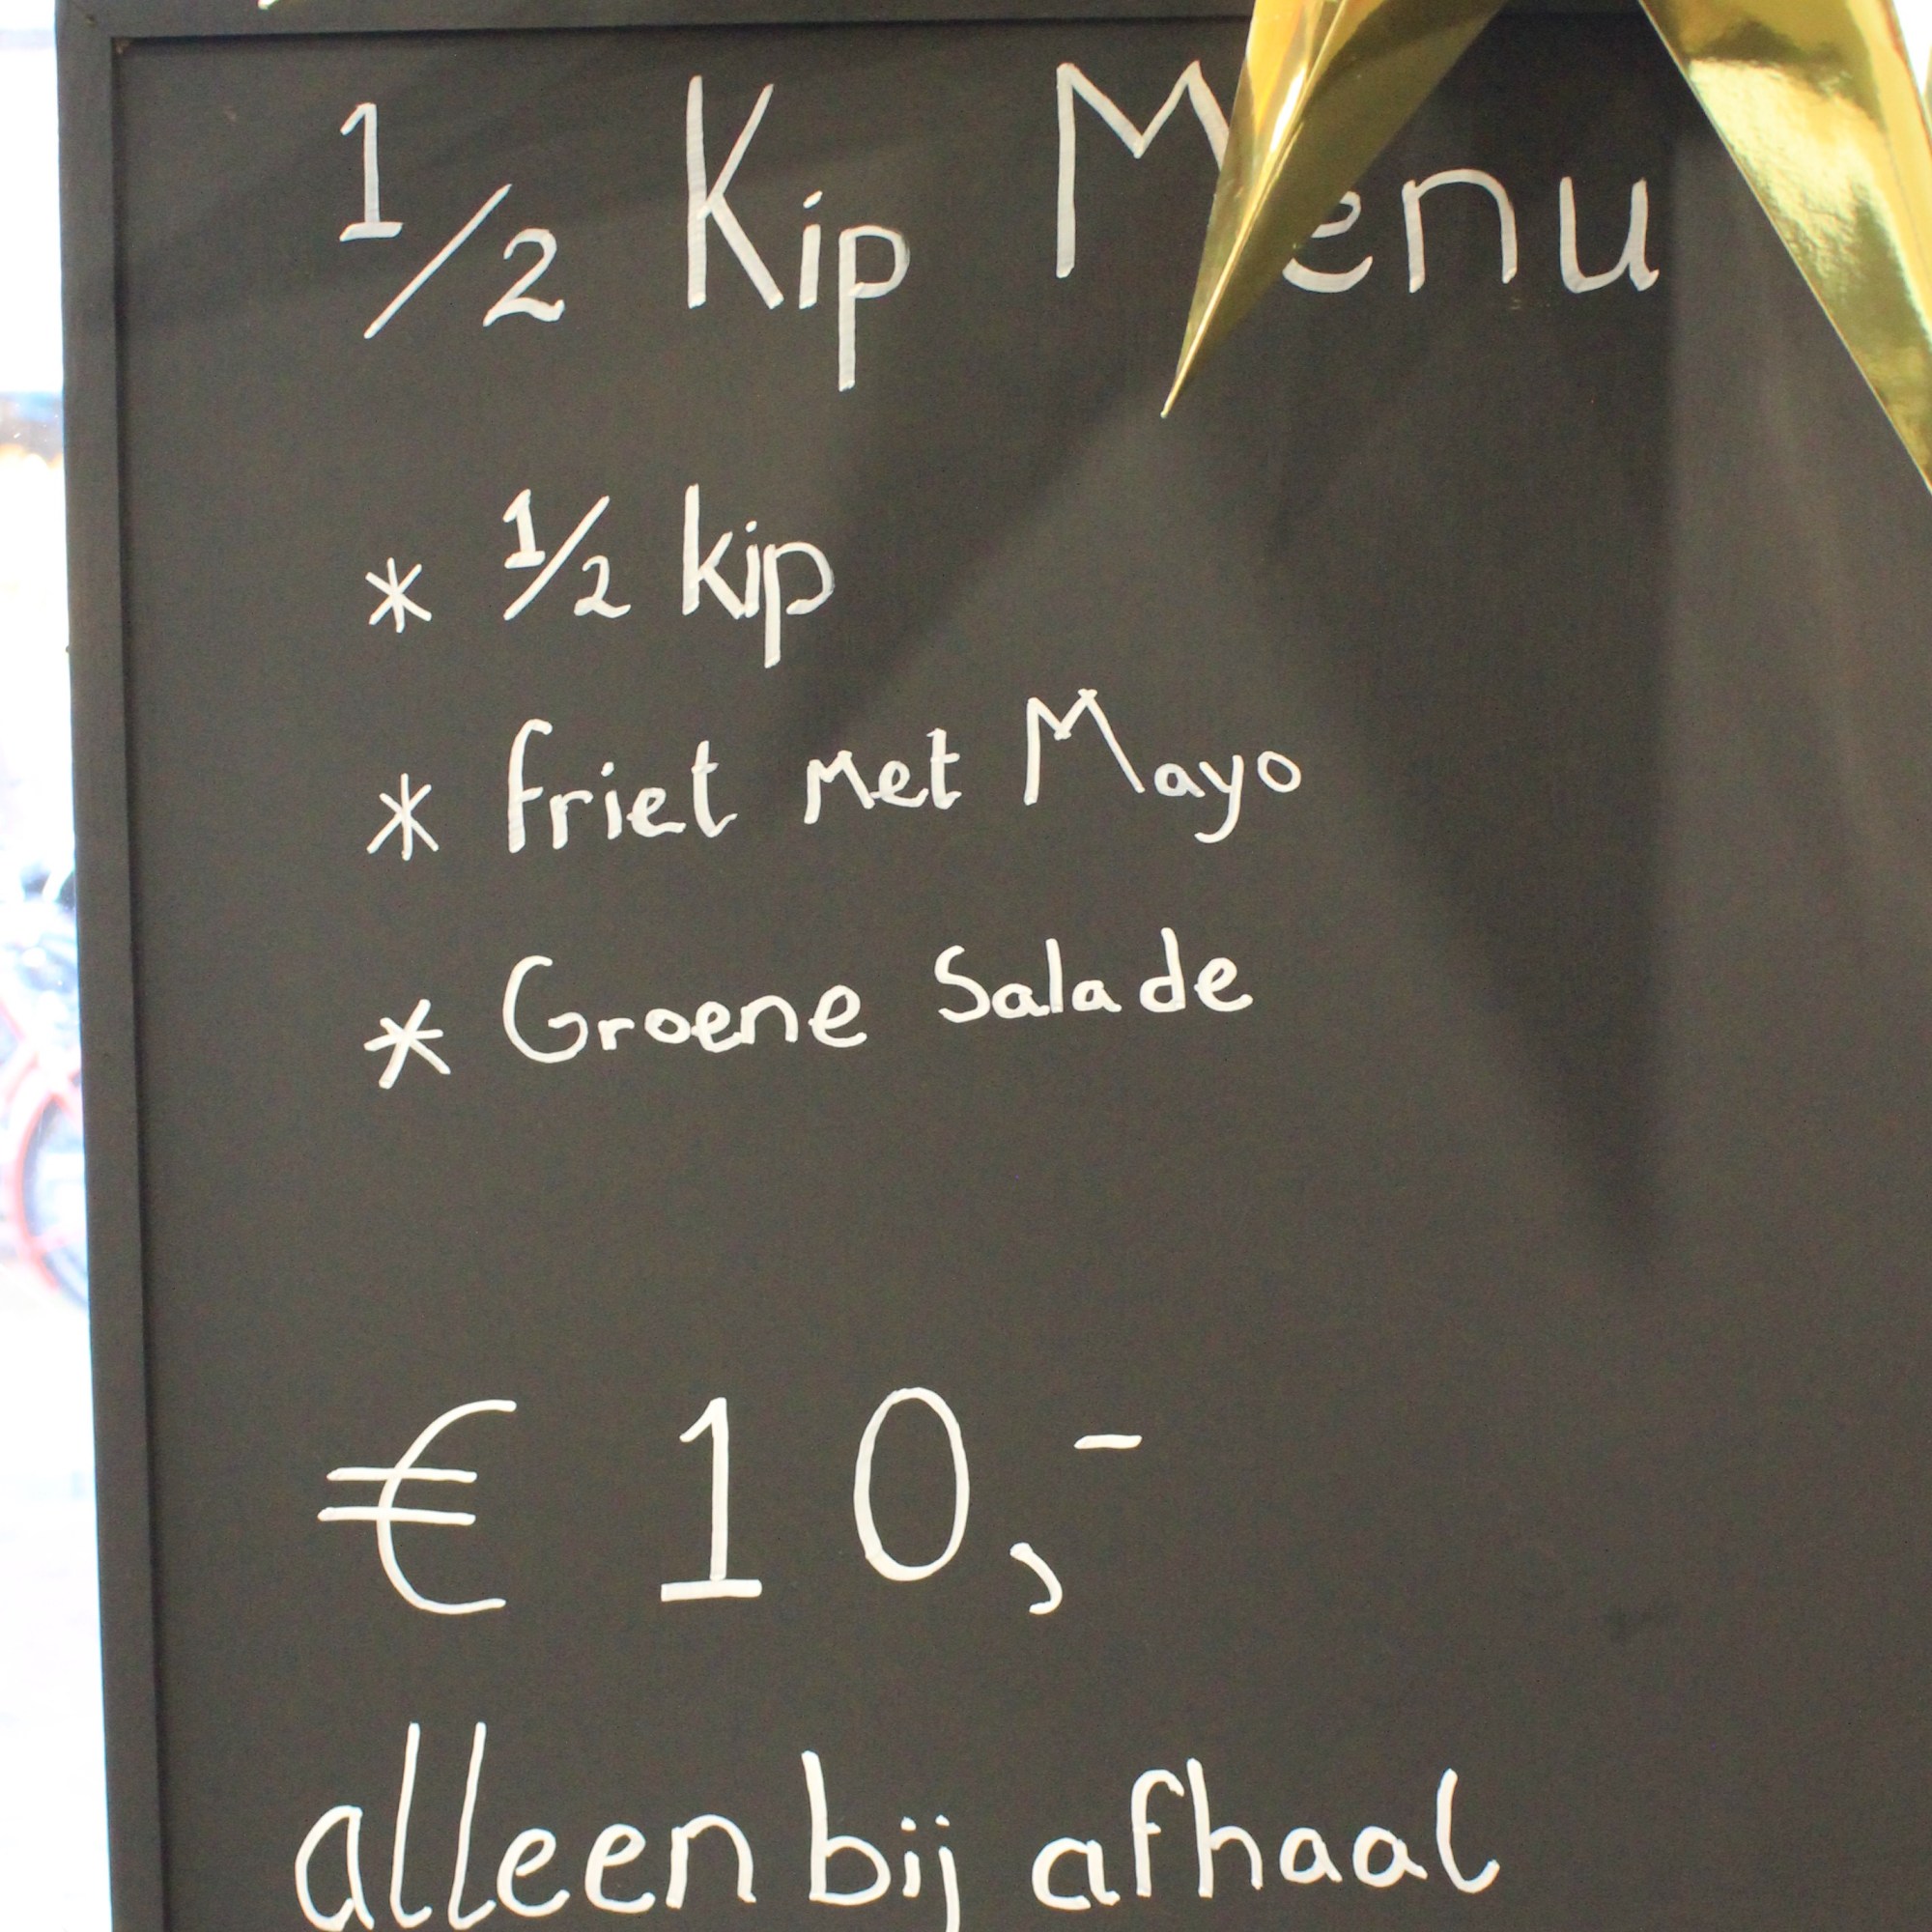 1/2 Kip Menu
* 1/2 kip
* Friet met Mayo
* Groene Salade
€ 10,-
alleen bij afhaal